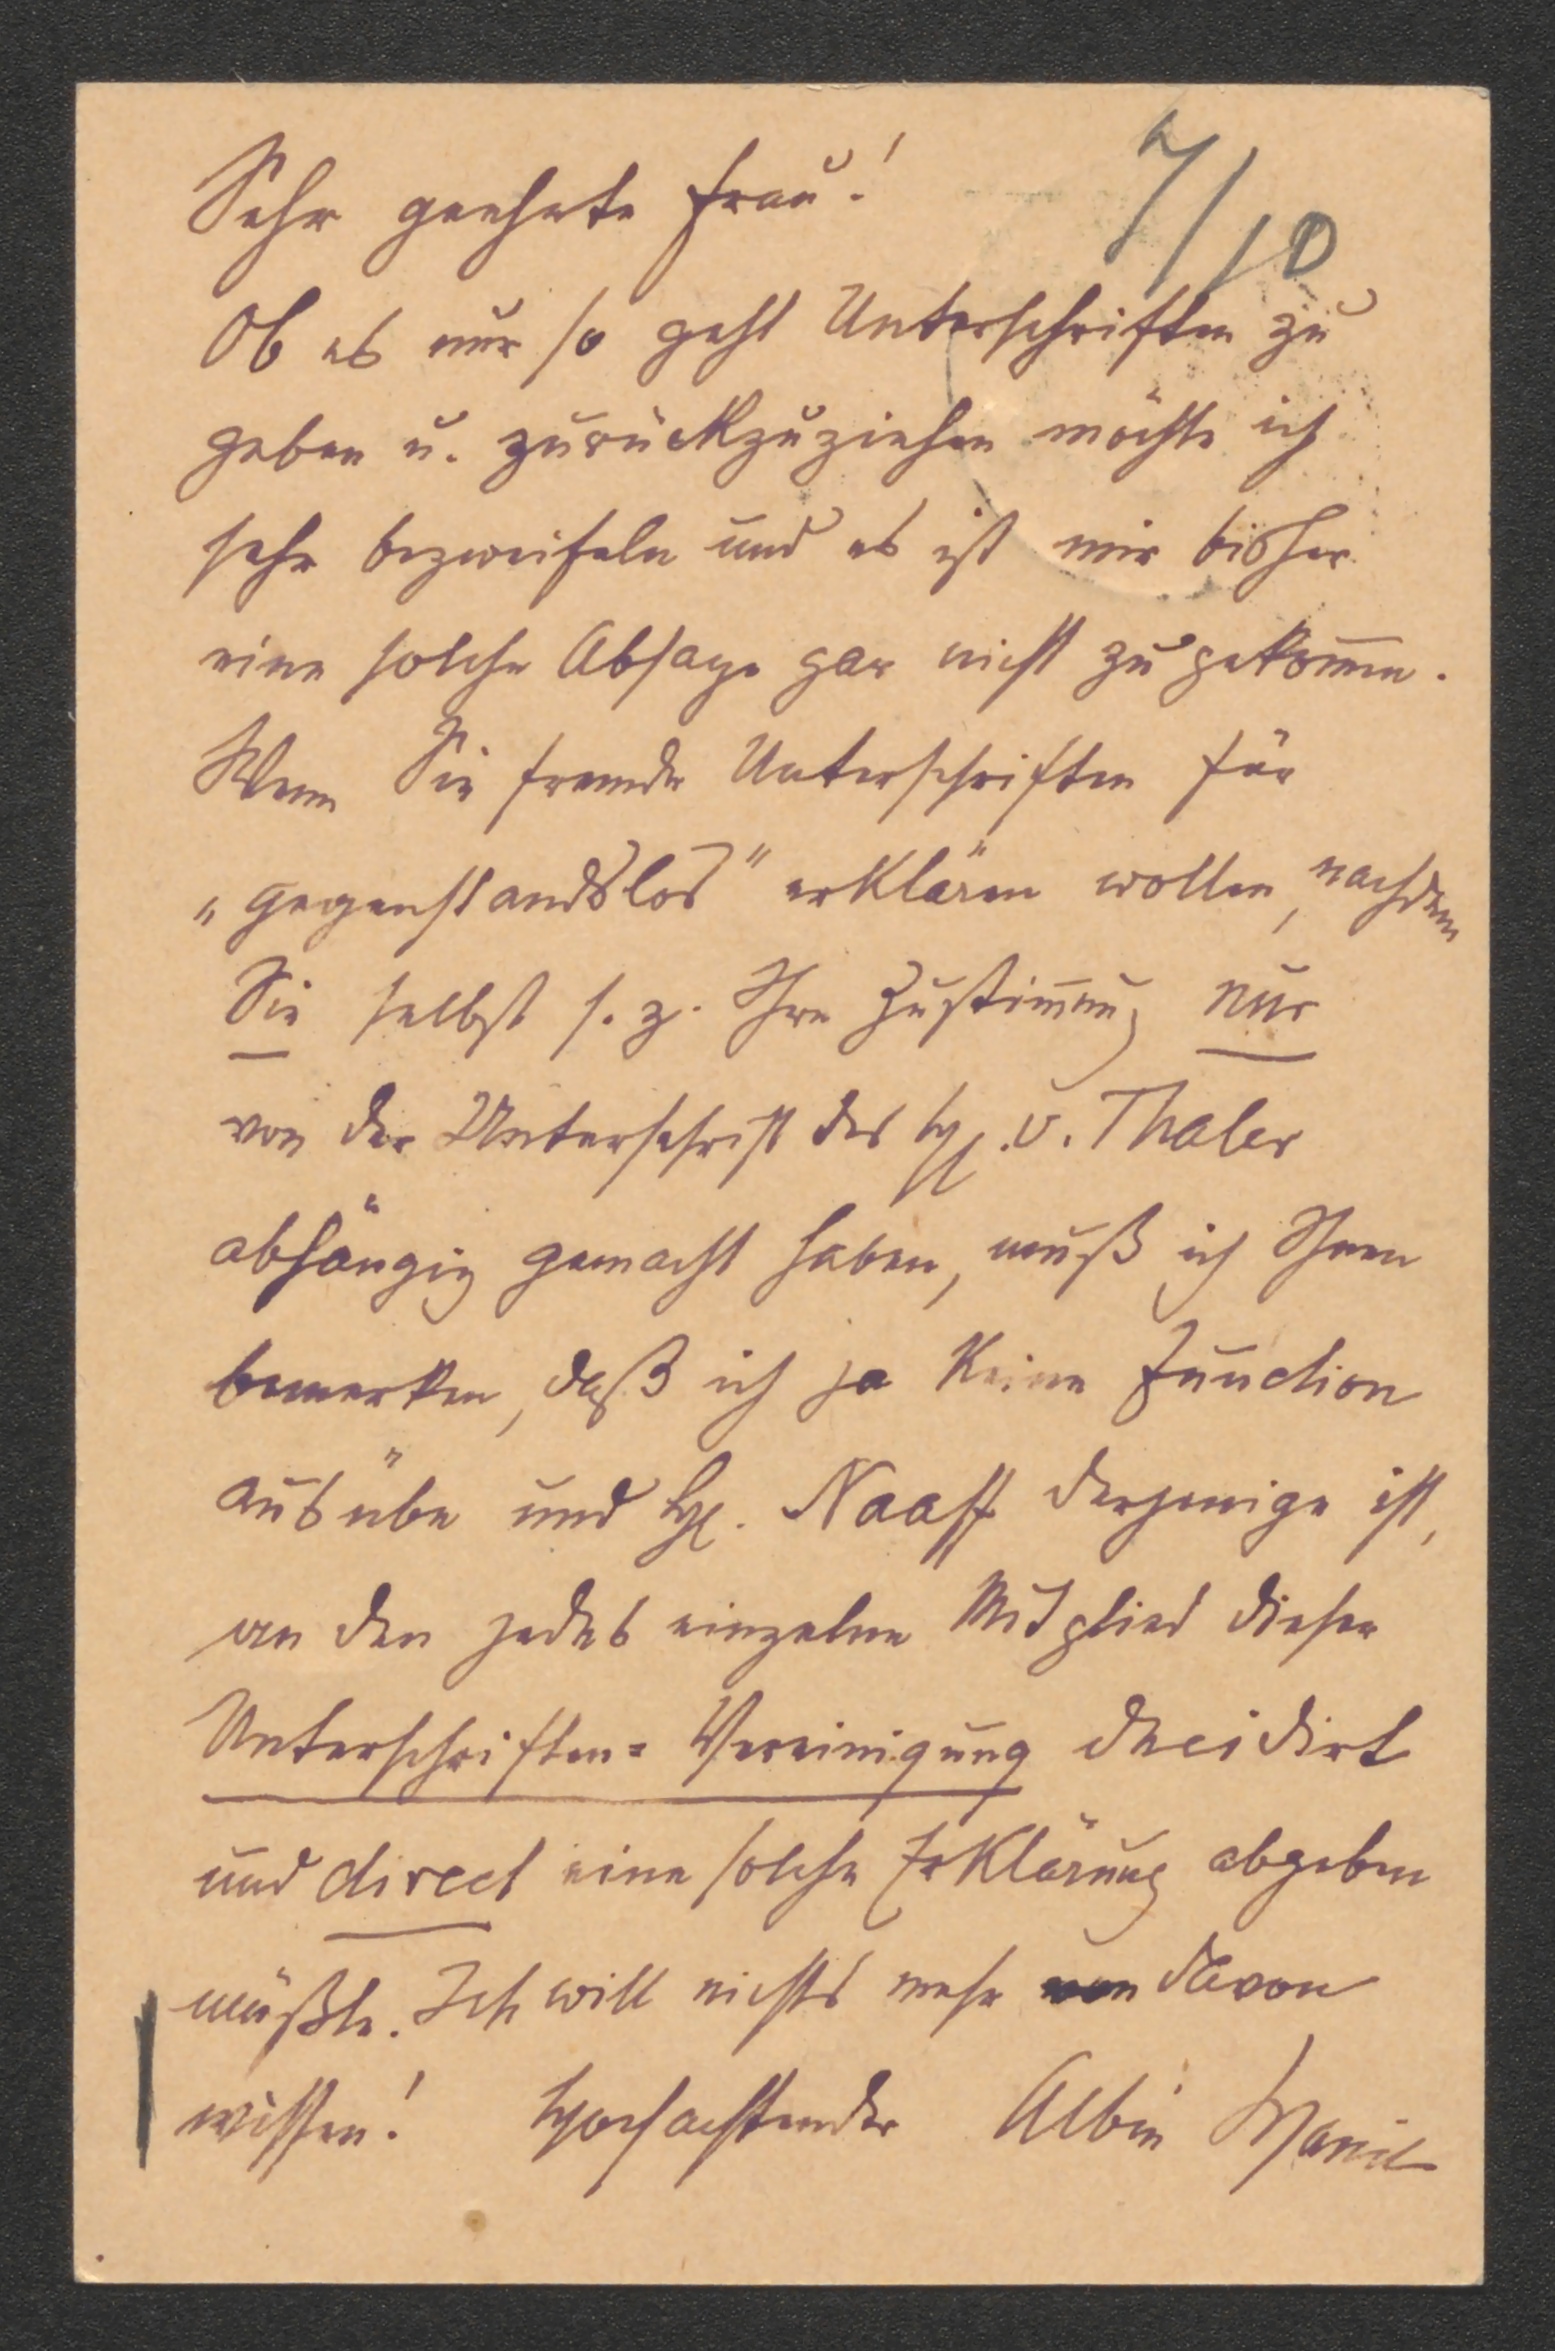 7/10
Sehr geehrte Frau!
Ob es nur so geht Unterschriften zu
geben u. zurückzuziehen möchte ich
sehr bezweifeln und es ist mir bisher
eine solche Absage gar nicht zugekom̅en.
Wenn Sie fremde Unterschriften für
„gegenstandslos" erklären wollen, nachdem
Sie selbst s. z. Ihre Zustim̅ung nur
von der Unterschrift des H. v. Thaler
abhängig gemacht haben, muß ich Ihnen
bemerken, daß ich ja keine Function
ausübe und H. Naaff derjenige ist,
an den jedes einzelne Mitglied dieser
Unterschriften=Vereinigung decidirt
und direct eine solche Erklärung abgeben
müßte. Ich will nichts mehr davon
wissen! Hochachtender Albin